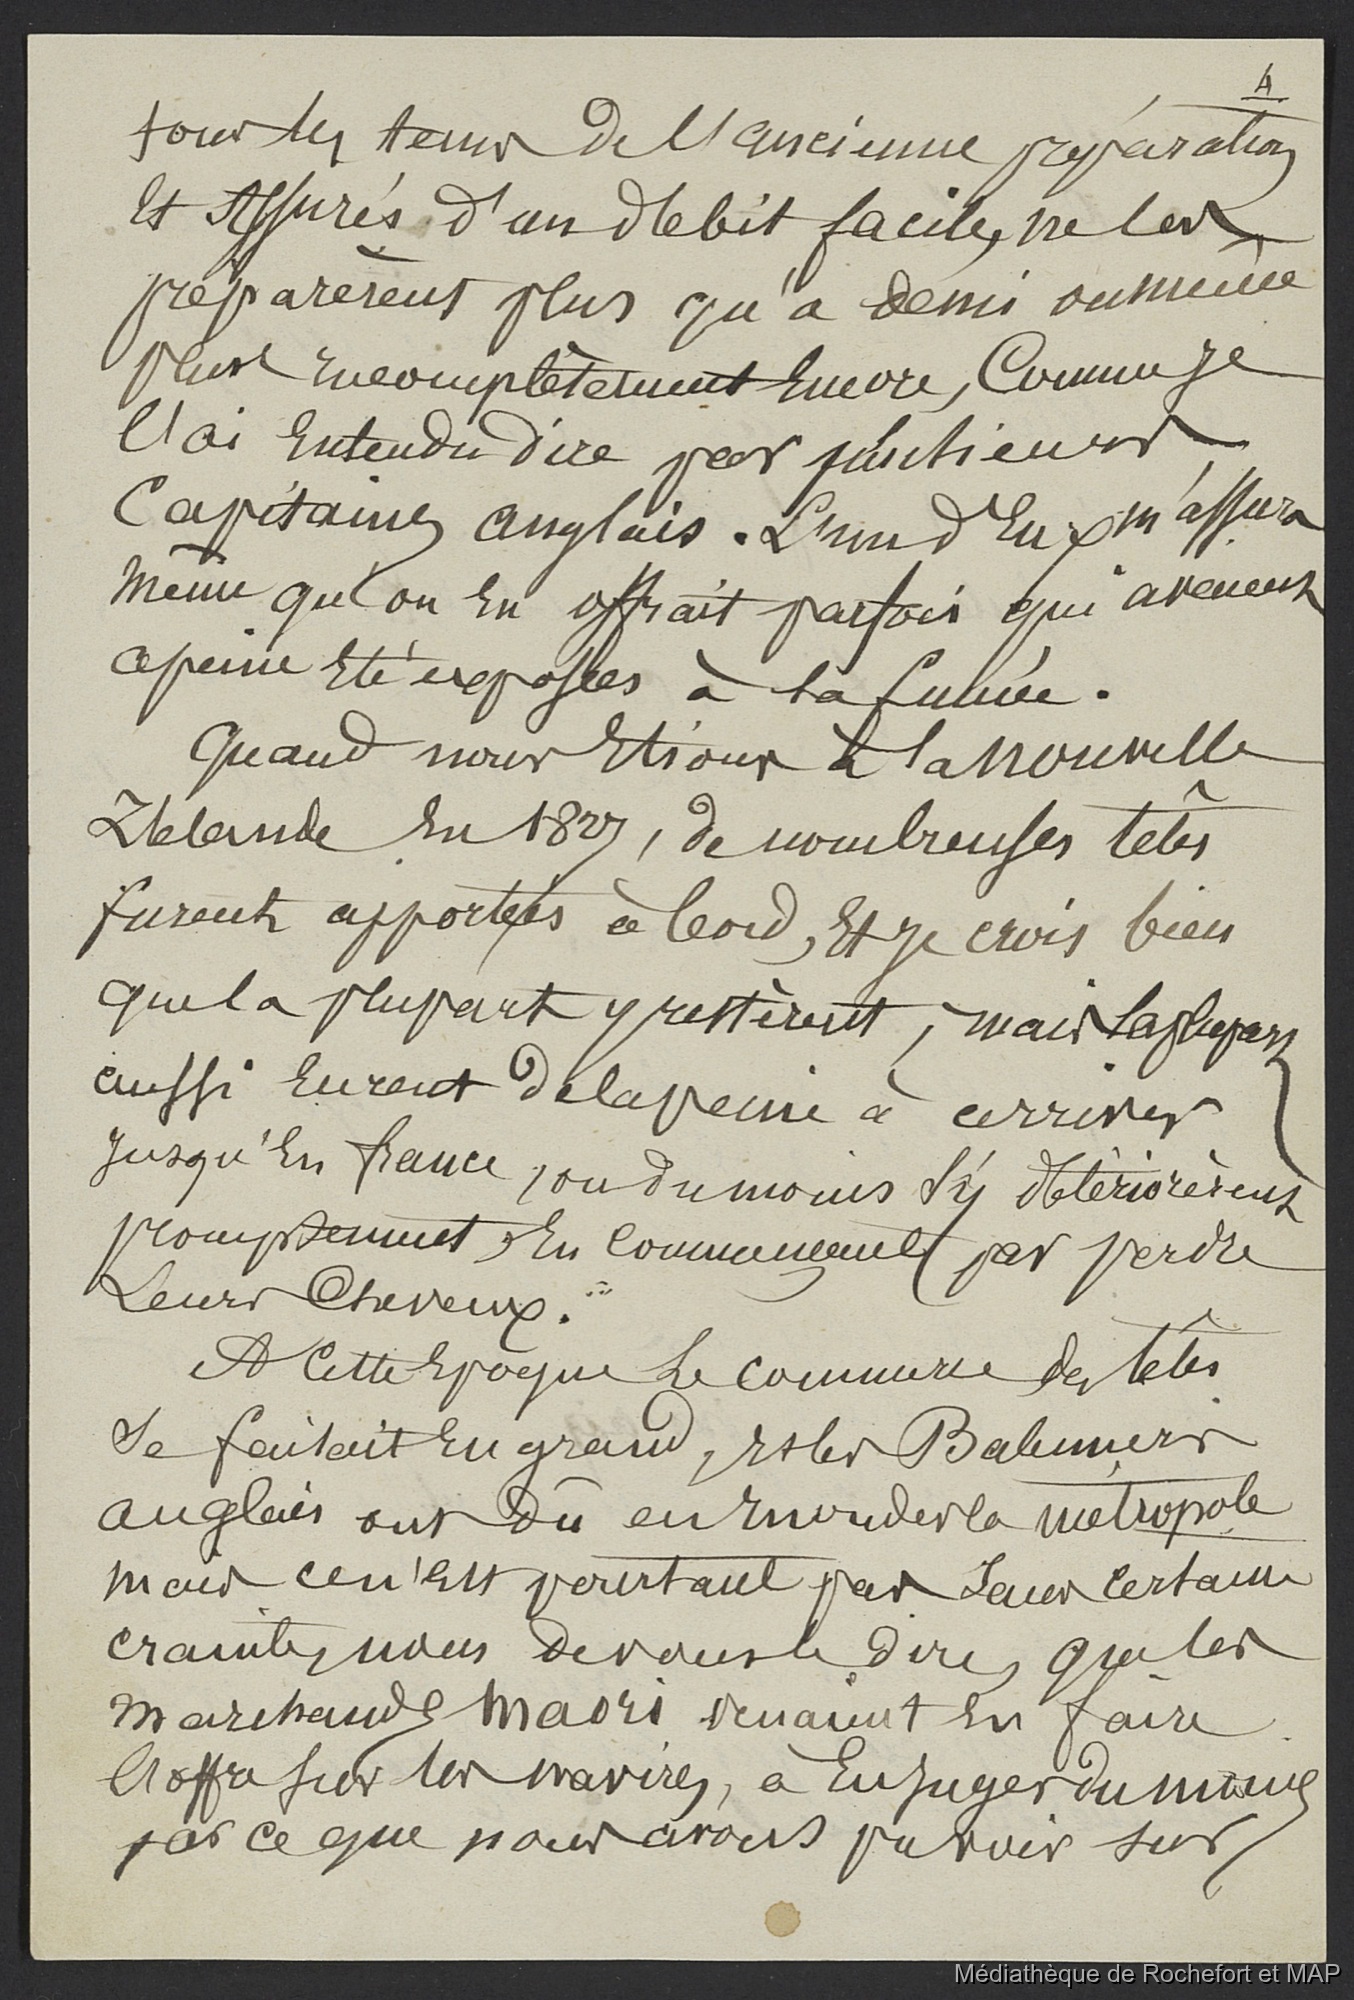 4
tous les tems de l'ancienne préparation
Et Assurés d'un débit facile, ne les
préparèrent plus qu'à demi ou même
plus Incomplètement Encore, Comme je
l'ai Entendu dire par plusieurs
Capitaines anglais. L'un d'Eux m'assura
même qu'on En offrait parfois qui avaient
apeine Eté exposées à la fumée.
Quand nous Etions à la Nouvelle
Zélande En 1827, de nombreuses têtes
furent apportées à bord, Et je crois bien
que la plupart y restèrent, mais la plupart
aussi Eurent de la peine à arriver
jusqu'En france, ou du moins s'y détériorèrent
promptement, En Commençant par perdre
Leurs Cheveux.
A Cette Epoque Le commerce des têtes
Se faisait En grand, Et les Baleiniers
anglais ont dû en Inonder la métropole
mais ce n'Est pourtant pas Sans certaine
crainte, nous devons le dire, que les
marchands Maori venaient En faire
l'offre sur les navires, à En juger du moins
par ce que nous avons pu voir sur
Médiathèque de Rochefort et MAP